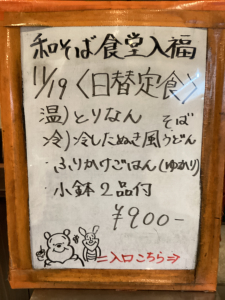 和そば食堂入福
11/19〈日替定食〉
温)とりなん そば
冷)冷したぬき風うどん
・ふりかけごはん(ゆかり)
・小鉢2品付
¥900-
=入口こちら⇒